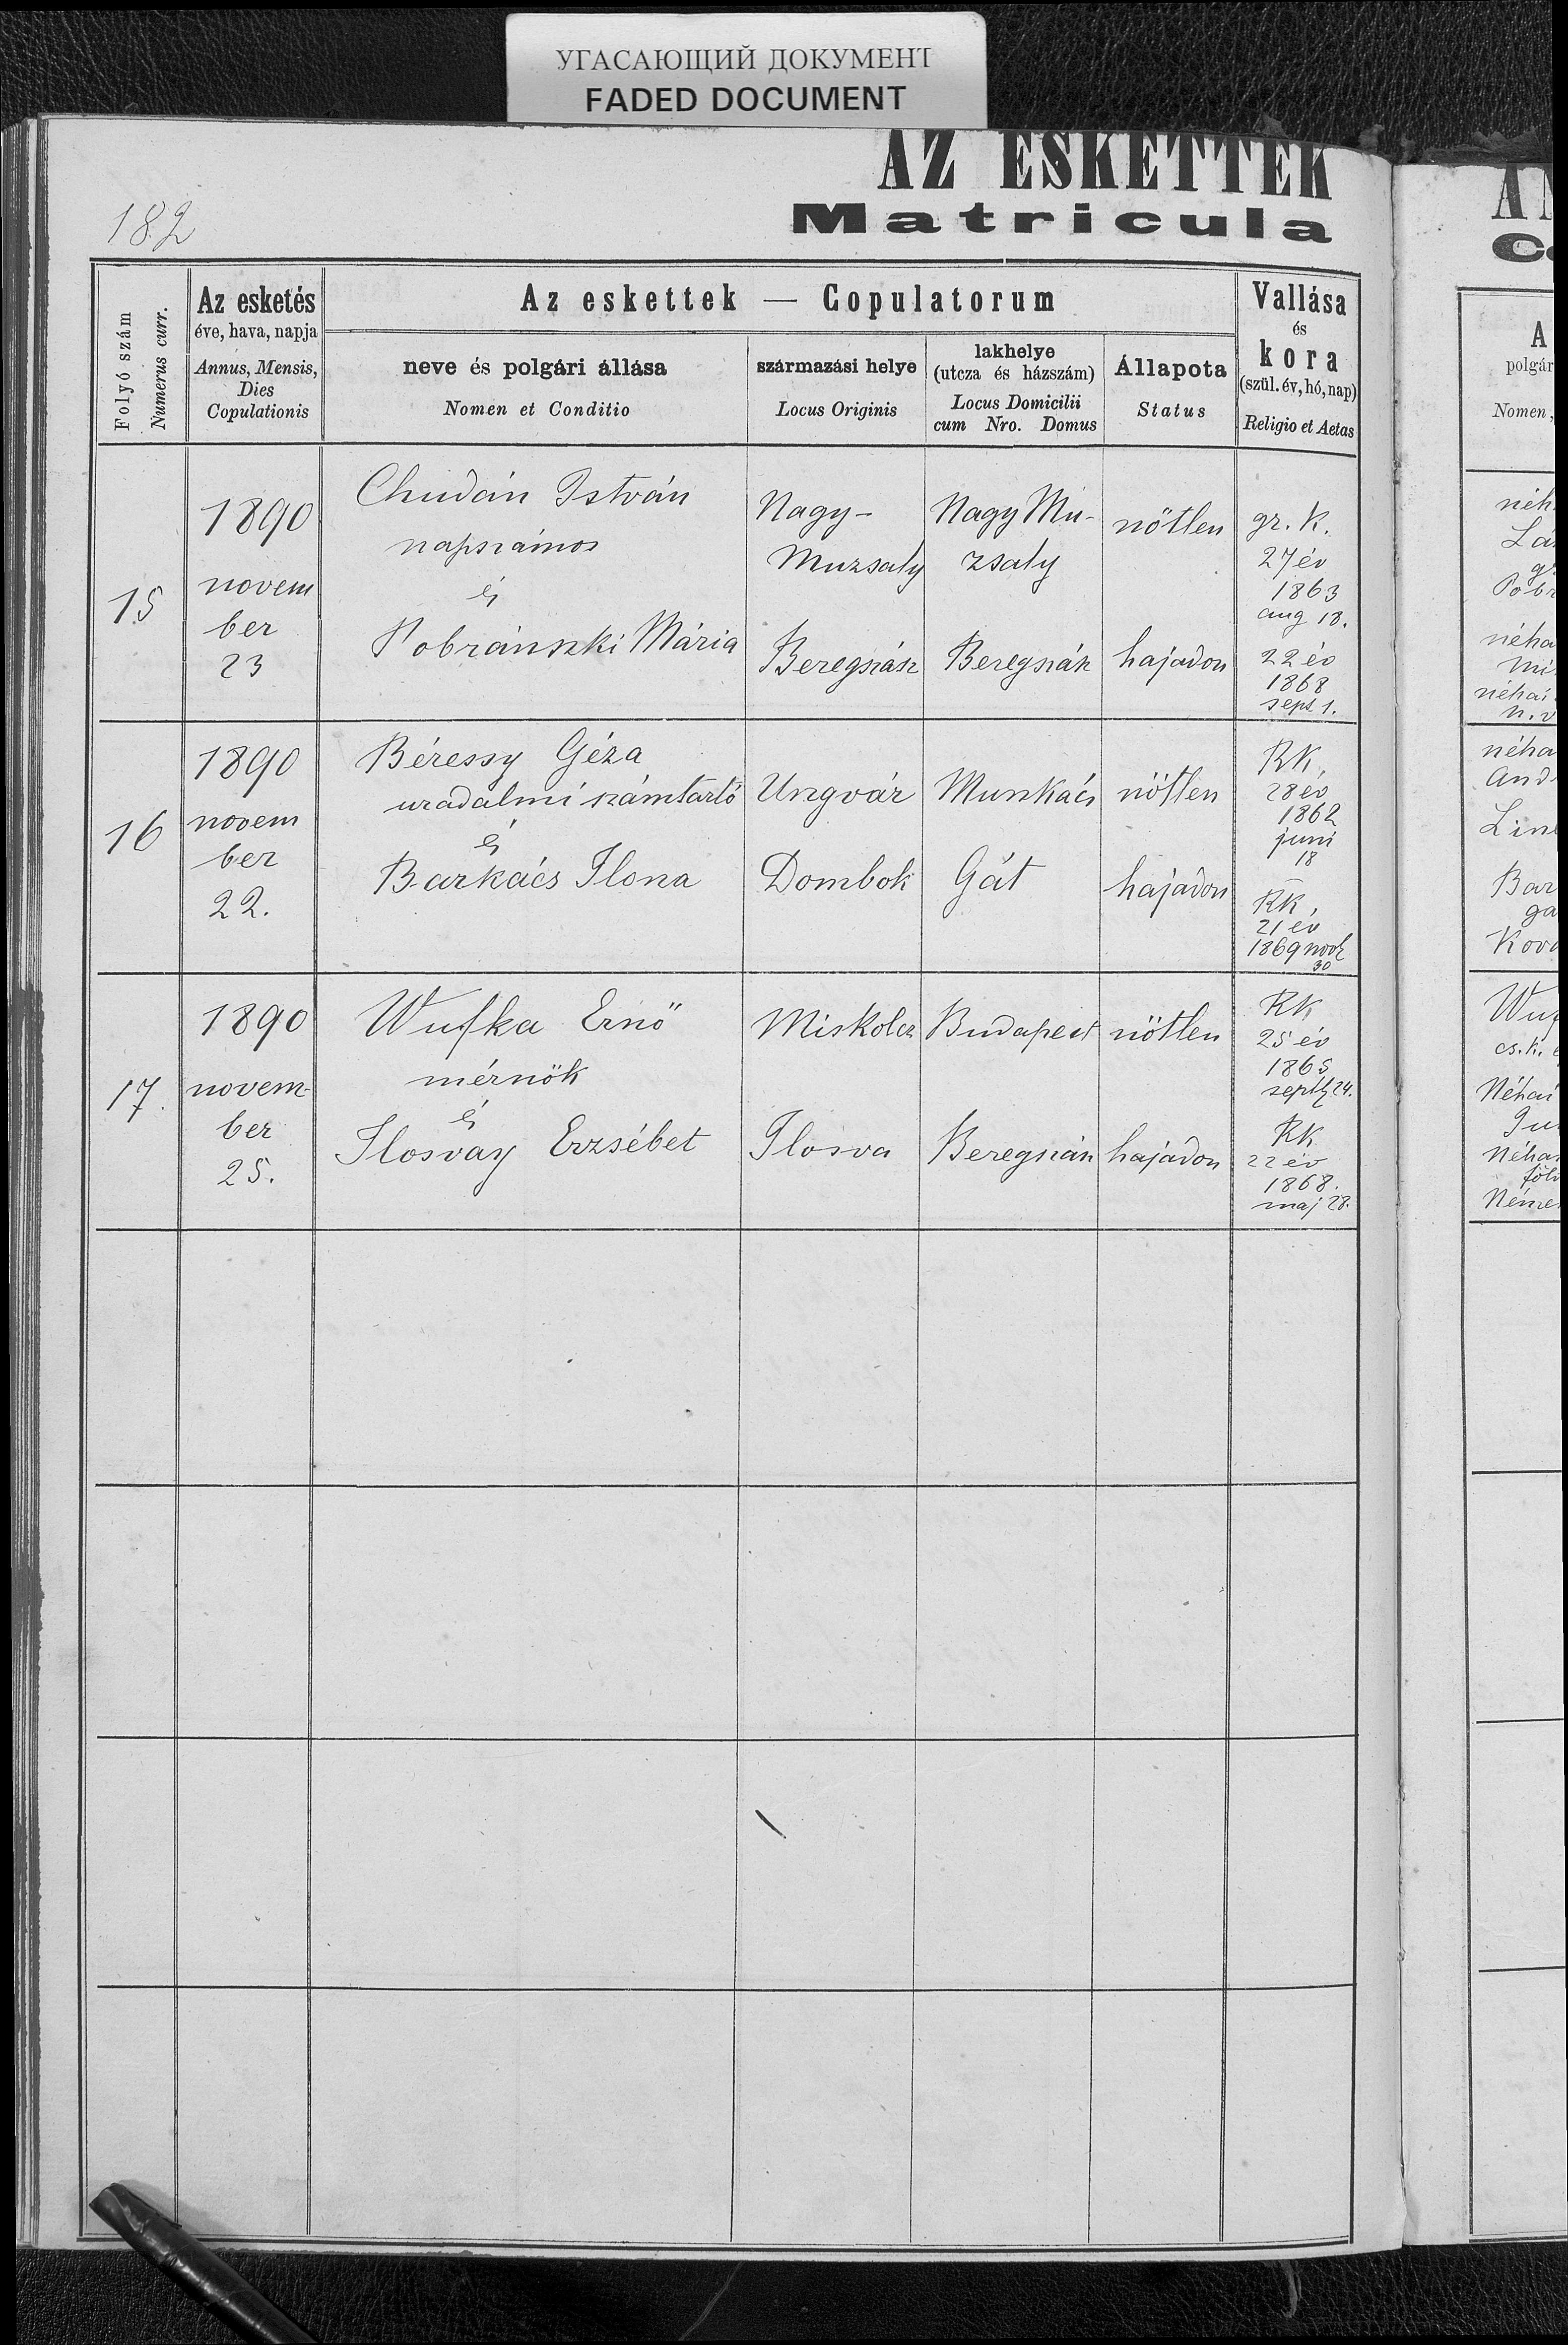 УГАСАЮЩИЙ ДОКУМЕНТ
FADED DOCUMENT
AZ ESKETTEK
Matricula
182
Folyó szám
Numerus curr.
Az esketés
éve, hava, napja
Annus, Mensis,
Dies
Copulationis
Az eskettek — Copulatorum
neve és polgári állása
Nomen et Conditio
származási helye
Locus Originis
lakhelye
(utcza és házszám)
Locus Domicilii
cum Nro. Domus
Állapota
Status
Vallása
és
kora
(szül. év, hó, nap)
Religio et Aetas
15
1890
novem
ber
23
Chudán István
napszámos
és
Pobránszki Mária
Nagy-
Muzsaly
Beregszász
Nagy Mu-
zsaly
Beregszász
nőtlen
hajadon
gr. k.
27 év
1863
aug 18.
22 év
1868
sept 1.
16
1890
novem
ber
22.
Béressy Géza
uradalmi számtartó
és
Barkács Ilona
Ungvár
Dombok
Munkács
Gát
nőtlen
hajadon
RK,
28 év
1862
juni
18
RK,
21 év
1869 novb
30
17.
1890
novem-
ber
25.
Wufka Ernő
mérnök
és
Ilosvay Erzsébet
Miskolcz
Ilosva
Budapest
Beregszász
nőtlen
hajadon
RK
25 év
1865
septb 24.
RK
22 év
1868.
maj 28.
A
polgár
Nomen,
néh
néha
néhai
néha
And
Bar
ga
Wuf
cs. k.
Néhai
Néhai
Néme